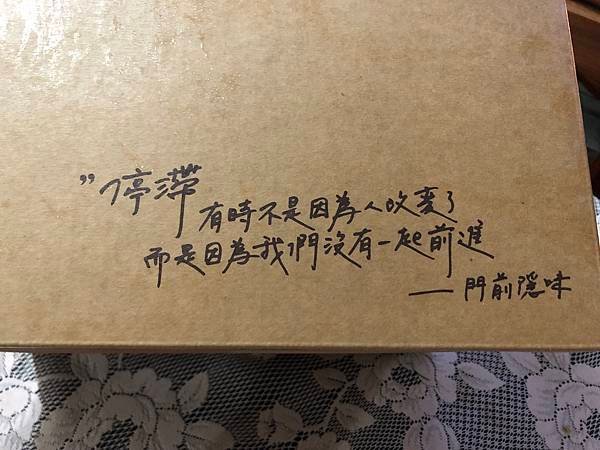 ”停滯
有時不是因為人改變了
而是因為我們沒有一起前進
——門前隱味